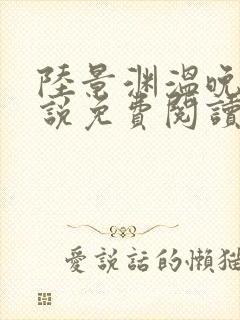 陸景渊溫晚
說免費閱讀
愛說話的懶猫